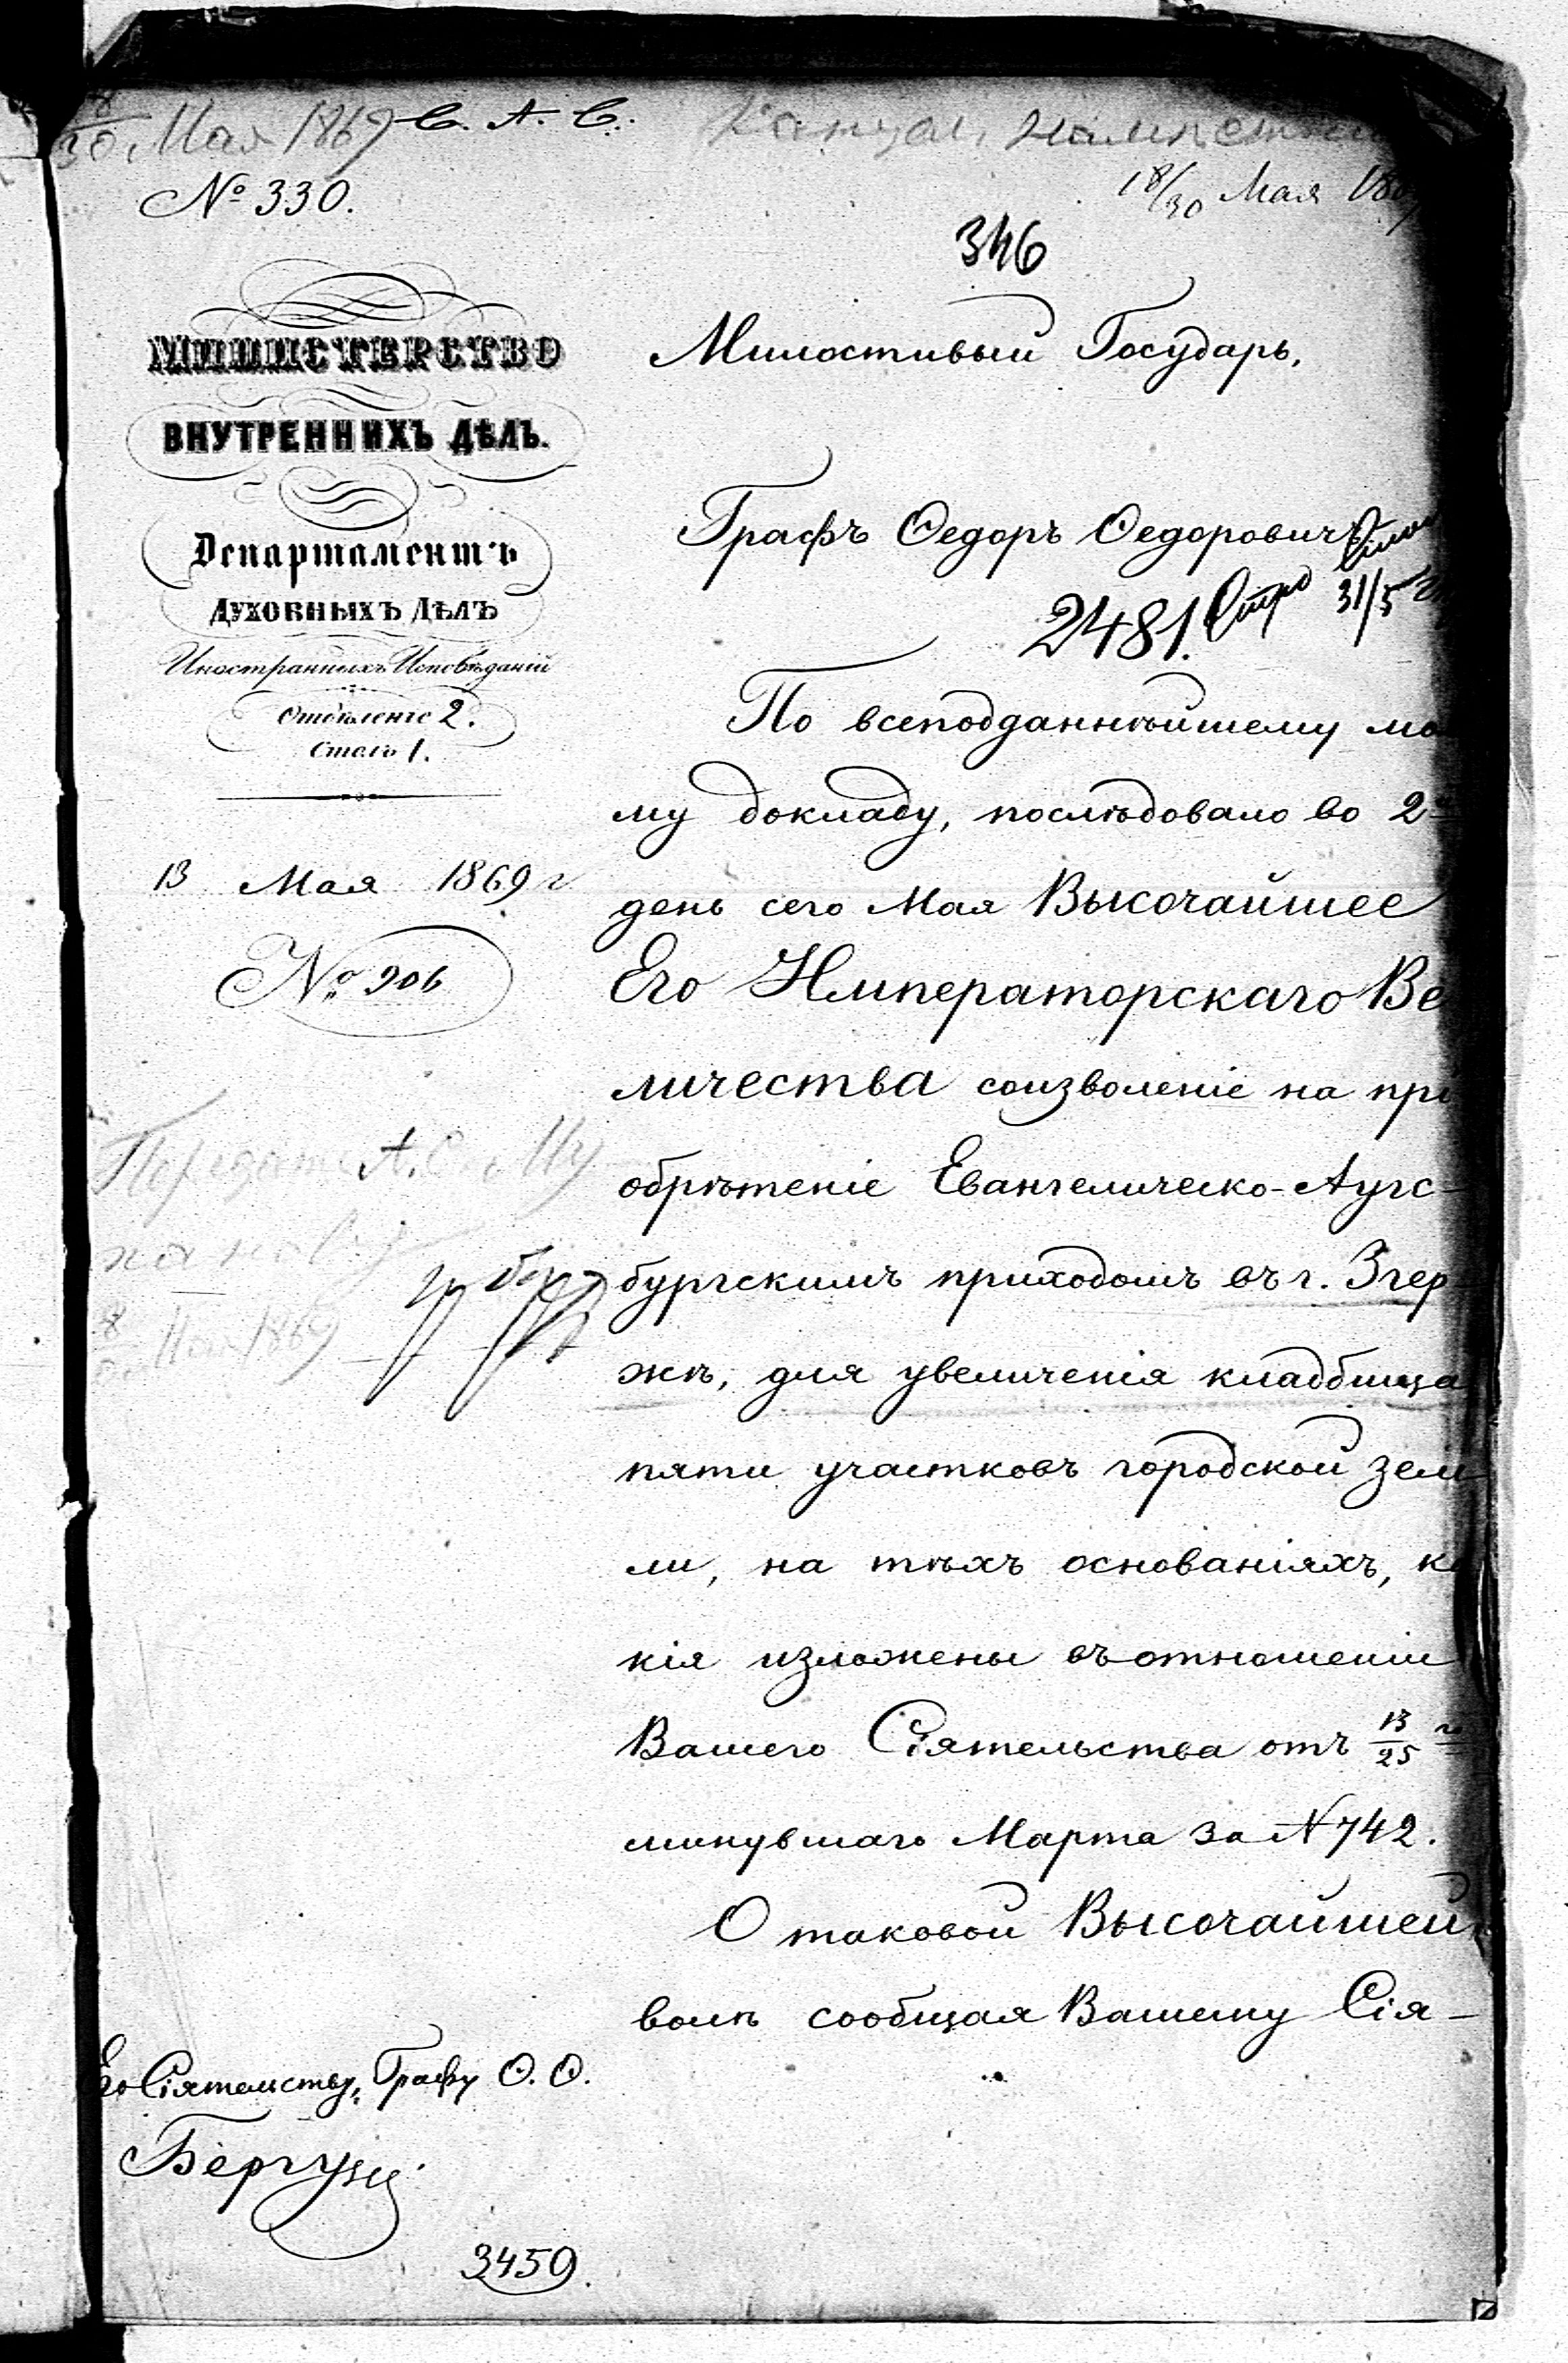 30 Мая 1869 С. А. С.
№ 330.
18/30 Мая
346
МИНИСТЕРСТВО
ВНУТРЕННИХЪ ДѢЛЪ.
Департаментъ
ДУХОВНЫХЪ ДѢЛЪ
Иностранныхъ Исповѣданій
Отдѣленіе 2.
Столъ 1.
13 Мая 1869 г
№ 906
Милостивый Государь,
Графъ Ѳедоръ Ѳедоровичъ
2481.
31/5
По всеподданнѣйшему мо
му докладу, послѣдовало во 2
день сего Мая Высочайшее
Его Императорскаго Ве
личества соизволеніе на прі
обрѣтеніе Евангелическо-Аугс-
бургскимъ приходомъ въ г. Згер-
жѣ, для увеличенія кладбища
пяти участковъ городской зем
ли, на тѣхъ основаніяхъ, ка
кія изложены въ отношеніи
Вашего Сіятельства отъ 13/25 го
минувшаго Марта за N 742.
О таковой Высочайшей
волѣ сообщая Вашему Сія-
Его Сіятельству, Графу Ѳ. Ѳ.
Бергу
3459.